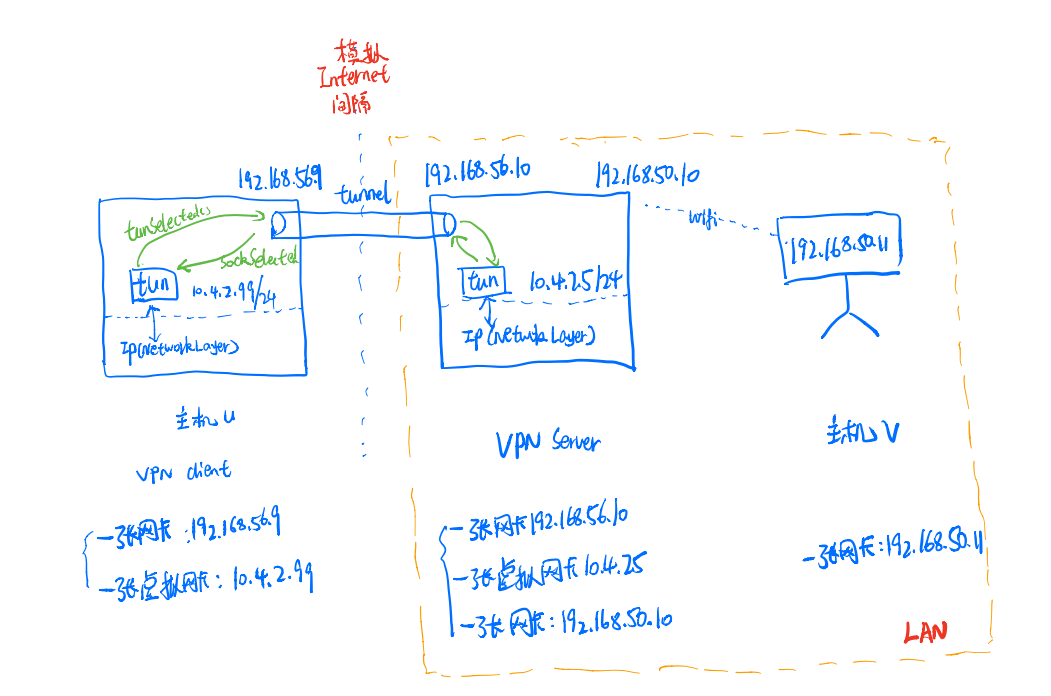 模拟
Internet
间隔
192.168.56.9
tunnel
192.168.56.10
192.168.50.10
wifi
tunSelected
sockSelected
tun
10.4.2.99/24
Ip(NetworkLayer)
tun
10.4.2.5/24
Ip(NetworkLayer)
192.168.50.11
主机U
VPN client
VPN Server
主机V
一张网卡:192.168.56.9
一张虚拟网卡:10.4.2.99
一张网卡192.168.56.10
一张虚拟网卡10.4.25
一张网卡:192.168.50.10
一张网卡:192.168.50.11
LAN